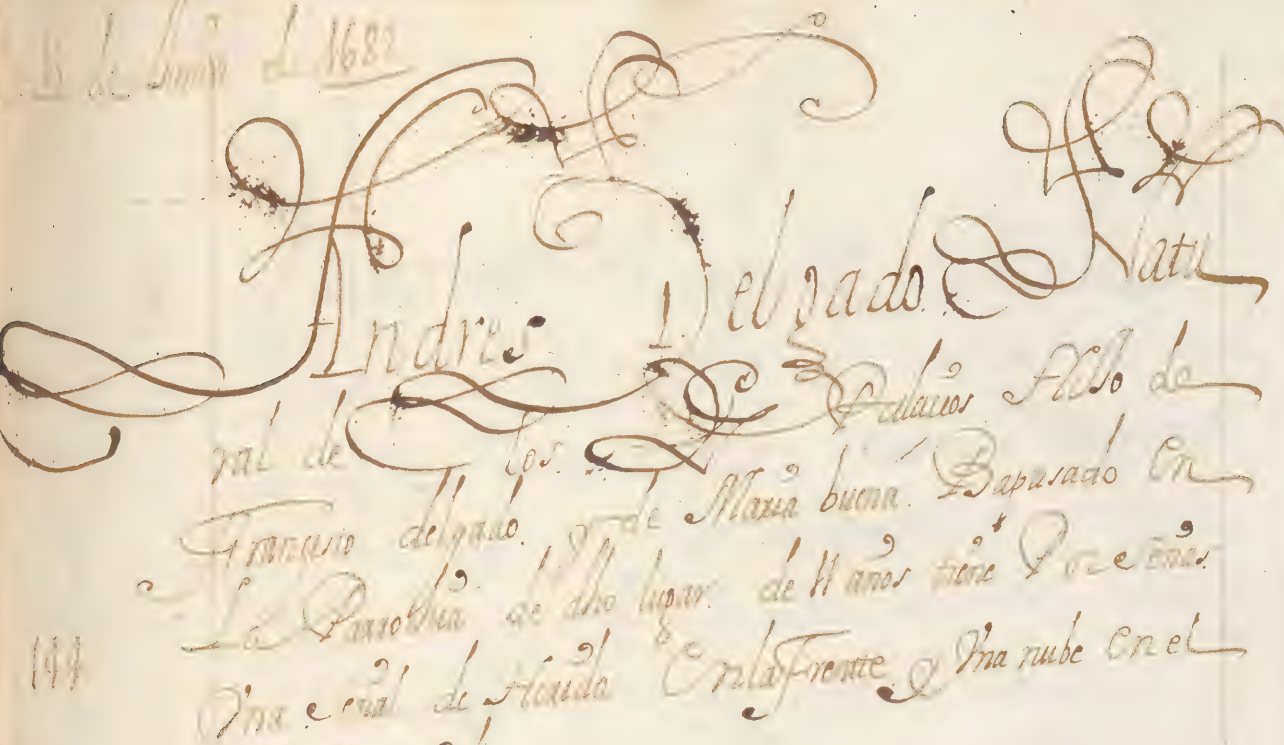 de Junio de 1682
Andres Delgado Natu
ral de los Palacios Hijo de
Francisco delgado. y de Maria buena. Bapusado en
La Parrochia de dho lugar. de 11 años tiene Por señas.
Vna señal de Herida En la Frente y Vna nube en el
144